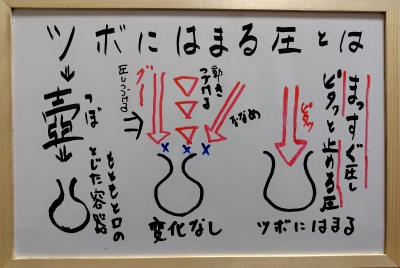 ツボにはまる圧とは
まっすぐ圧し
ピタッと止める圧
ピタッ
ツボにはまる
ななめ
動き
つづける
グー
圧しつづける
変化なし
壺
つぼ
もともと口の
とじた容器